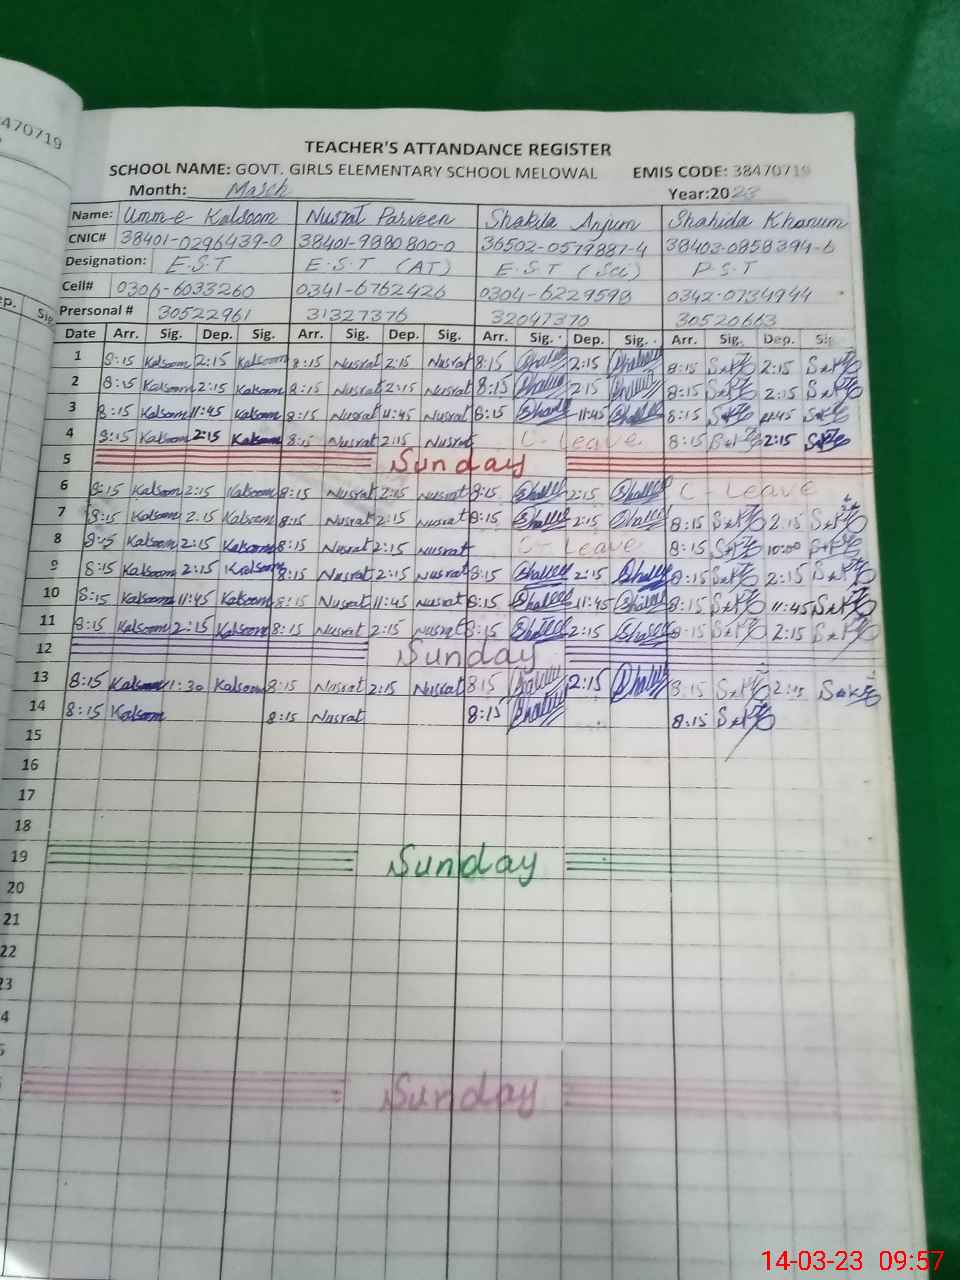 470719
TEACHER'S ATTANDANCE REGISTER
SCHOOL NAME: GOVT. GIRLS ELEMENTARY SCHOOL MELOWAL EMIS CODE: 38470719
Month: March Year:2023
Name: Umm-e Kalsoom Nusrat Parveen Shakila Anjum Shahida Khanum
CNIC# 38401-0296439-0 38401-9880800-0 36502-0579887-4 38403-0858394-6
Designation: E.S.T E.S.T (AT) E.S.T (Sci) P.S.T
Cell# 0306-6033260 0341-6762426 0304-6229598 0342-0734944
Prersonal # 30522961 31327376 32047370 30520663
Date Arr. Sig. Dep. Sig. Arr. Sig. Dep. Sig. Arr. Sig. Dep. Sig. Arr. Sig. Dep. Sig
1 8:15 Kalsoom 2:15 Kalsoom 8:15 Nusrat 2:15 Nusrat 8:15 2:15 8:15 2:15
2 8:15 Kalsoom 2:15 Kalsoom 8:15 Nusrat 2:15 Nusrat 8:15 2:15 8:15 2:15
3 8:15 Kalsoom 11:45 Kalsoom 8:15 Nusrat 11:45 Nusrat 8:15 11:45 8:15 11:45
4 8:15 Kalsoom 2:15 Kalsoom 8:15 Nusrat 2:15 Nusrat C-Leave 8:15 2:15
5 Sunday
6 8:15 Kalsoom 2:15 Kalsoom 8:15 Nusrat 2:15 Nusrat 8:15 2:15 C-Leave
7 8:15 Kalsoom 2:15 Kalsoom 8:15 Nusrat 2:15 Nusrat 8:15 2:15 8:15 2:15
8 8:15 Kalsoom 2:15 Kalsoom 8:15 Nusrat 2:15 Nusrat C-Leave 8:15 10:00
9 8:15 Kalsoom 2:15 Kalsoom 8:15 Nusrat 2:15 Nusrat 8:15 2:15 8:15 2:15
10 8:15 Kalsoom 11:45 Kalsoom 8:15 Nusrat 11:45 Nusrat 8:15 11:45 8:15 11:45
11 8:15 Kalsoom 2:15 Kalsoom 8:15 Nusrat 2:15 Nusrat 8:15 2:15 8:15 2:15
12 Sunday
13 8:15 Kalsoom 1:30 Kalsoom 8:15 Nusrat 2:15 Nusrat 8:15 2:15 8:15 2:15
14 8:15 Kalsoom 8:15 Nusrat 8:15 8:15
15
16
17
18
19 Sunday
20
21
22
23
4
Sunday
14-03-23 09:57